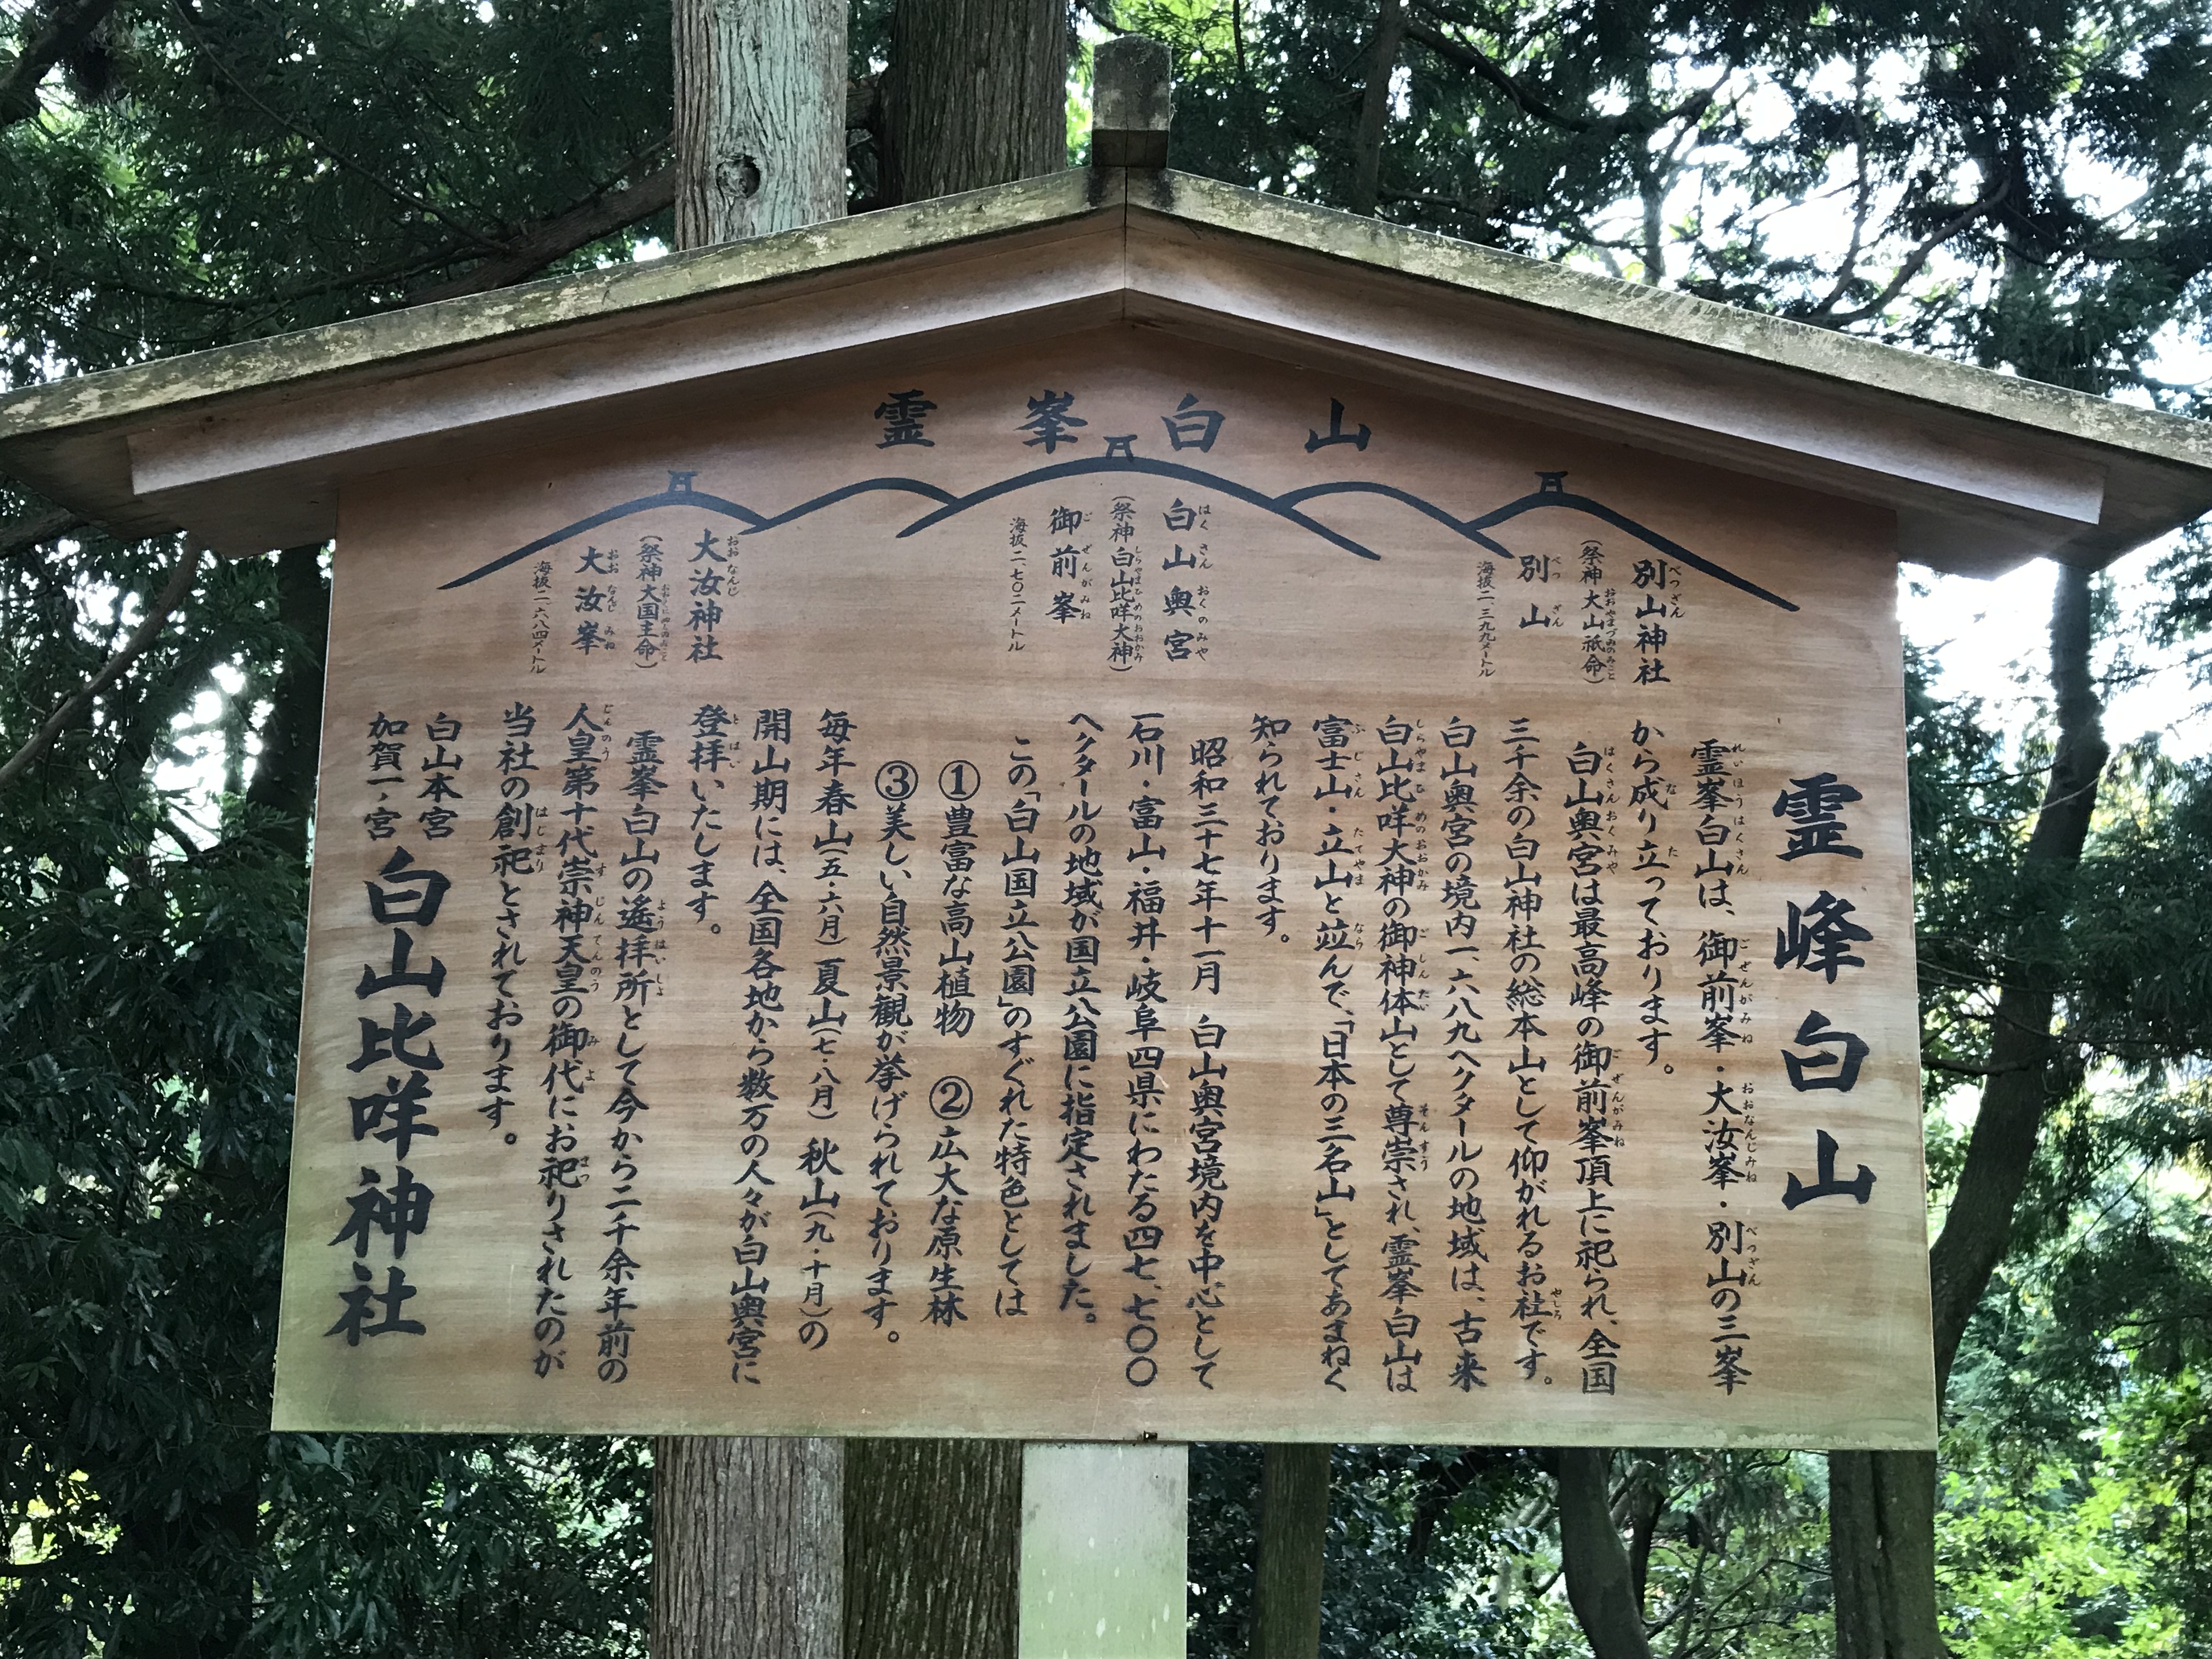 霊峯白山
別山神社
(祭神 大山祇命)
別山
海抜二、三九九メートル
白山奥宮
(祭神 白山比咩大神)
御前峯
海抜二、七〇二メートル
大汝神社
(祭神 大国主命)
大汝峯
海抜二、六八四メートル
霊峰白山
霊峯白山は、御前峯・大汝峯・別山の三峯
から成り立っております。
白山奥宮は最高峰の御前峯頂上に祀られ、全国
三千余の白山神社の総本山として仰がれるお社です。
白山奥宮の境内一、六八九ヘクタールの地域は、古来
白山比咩大神の御神体山として尊崇され、霊峯白山は
富士山・立山と竝んで、「日本の三名山」としてあまねく
知られております。
昭和三十七年十一月 白山奥宮境内を中心として
石川・富山・福井・岐阜四県にわたる四七、七〇〇
ヘクタールの地域が国立公園に指定されました。
この「白山国立公園」のすぐれた特色としては
①豊富な高山植物 ②広大な原生林
③美しい自然景観が挙げられております。
毎年春山(五・六月)夏山(七・八月) 秋山(九・十月)の
開山期には、全国各地から数万の人々が白山奥宮に
登拝いたします。
霊峯白山の遙拝所として今から二千余年前の
人皇第十代崇神天皇の御代にお祀りされたのが
当社の創祀とされております。
白山本宮
加賀一ノ宮
白山比咩神社